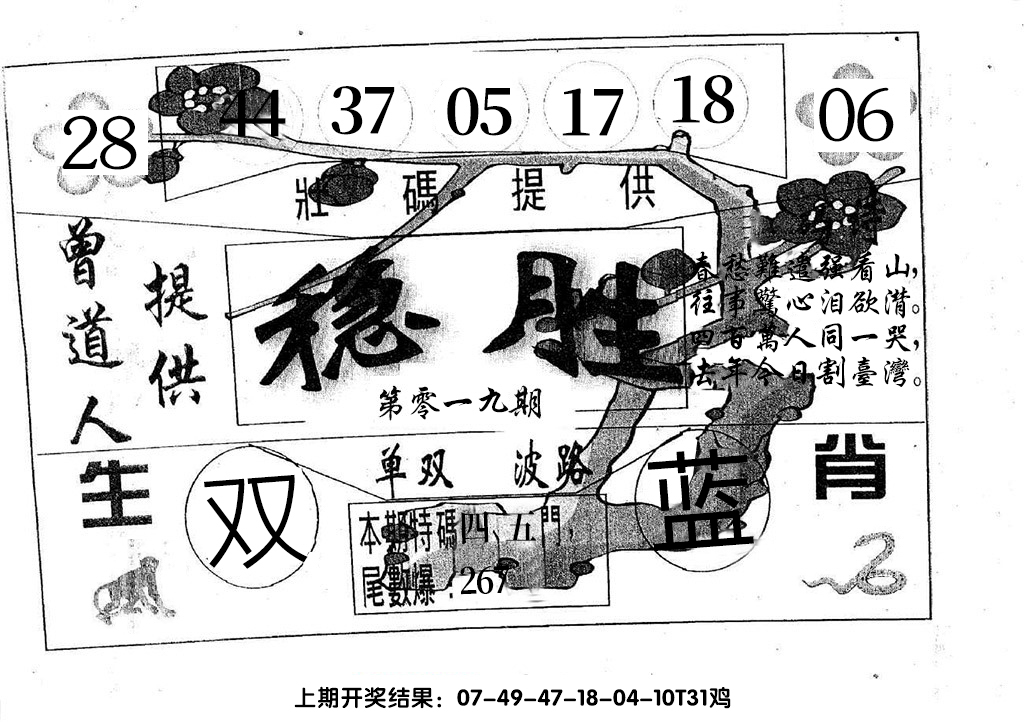 28 44 37 05 17 18 06
壯碼提供
曾道人
提供
稳胜
第零一九期
春愁難遣强看山，
往事驚心泪欲潸。
四百萬人同一哭，
去年今日割臺灣。
单双 波路
生肖
双
蓝
本期特碼四、五門，
尾數爆：267
上期开奖结果：07-49-47-18-04-10T31鸡